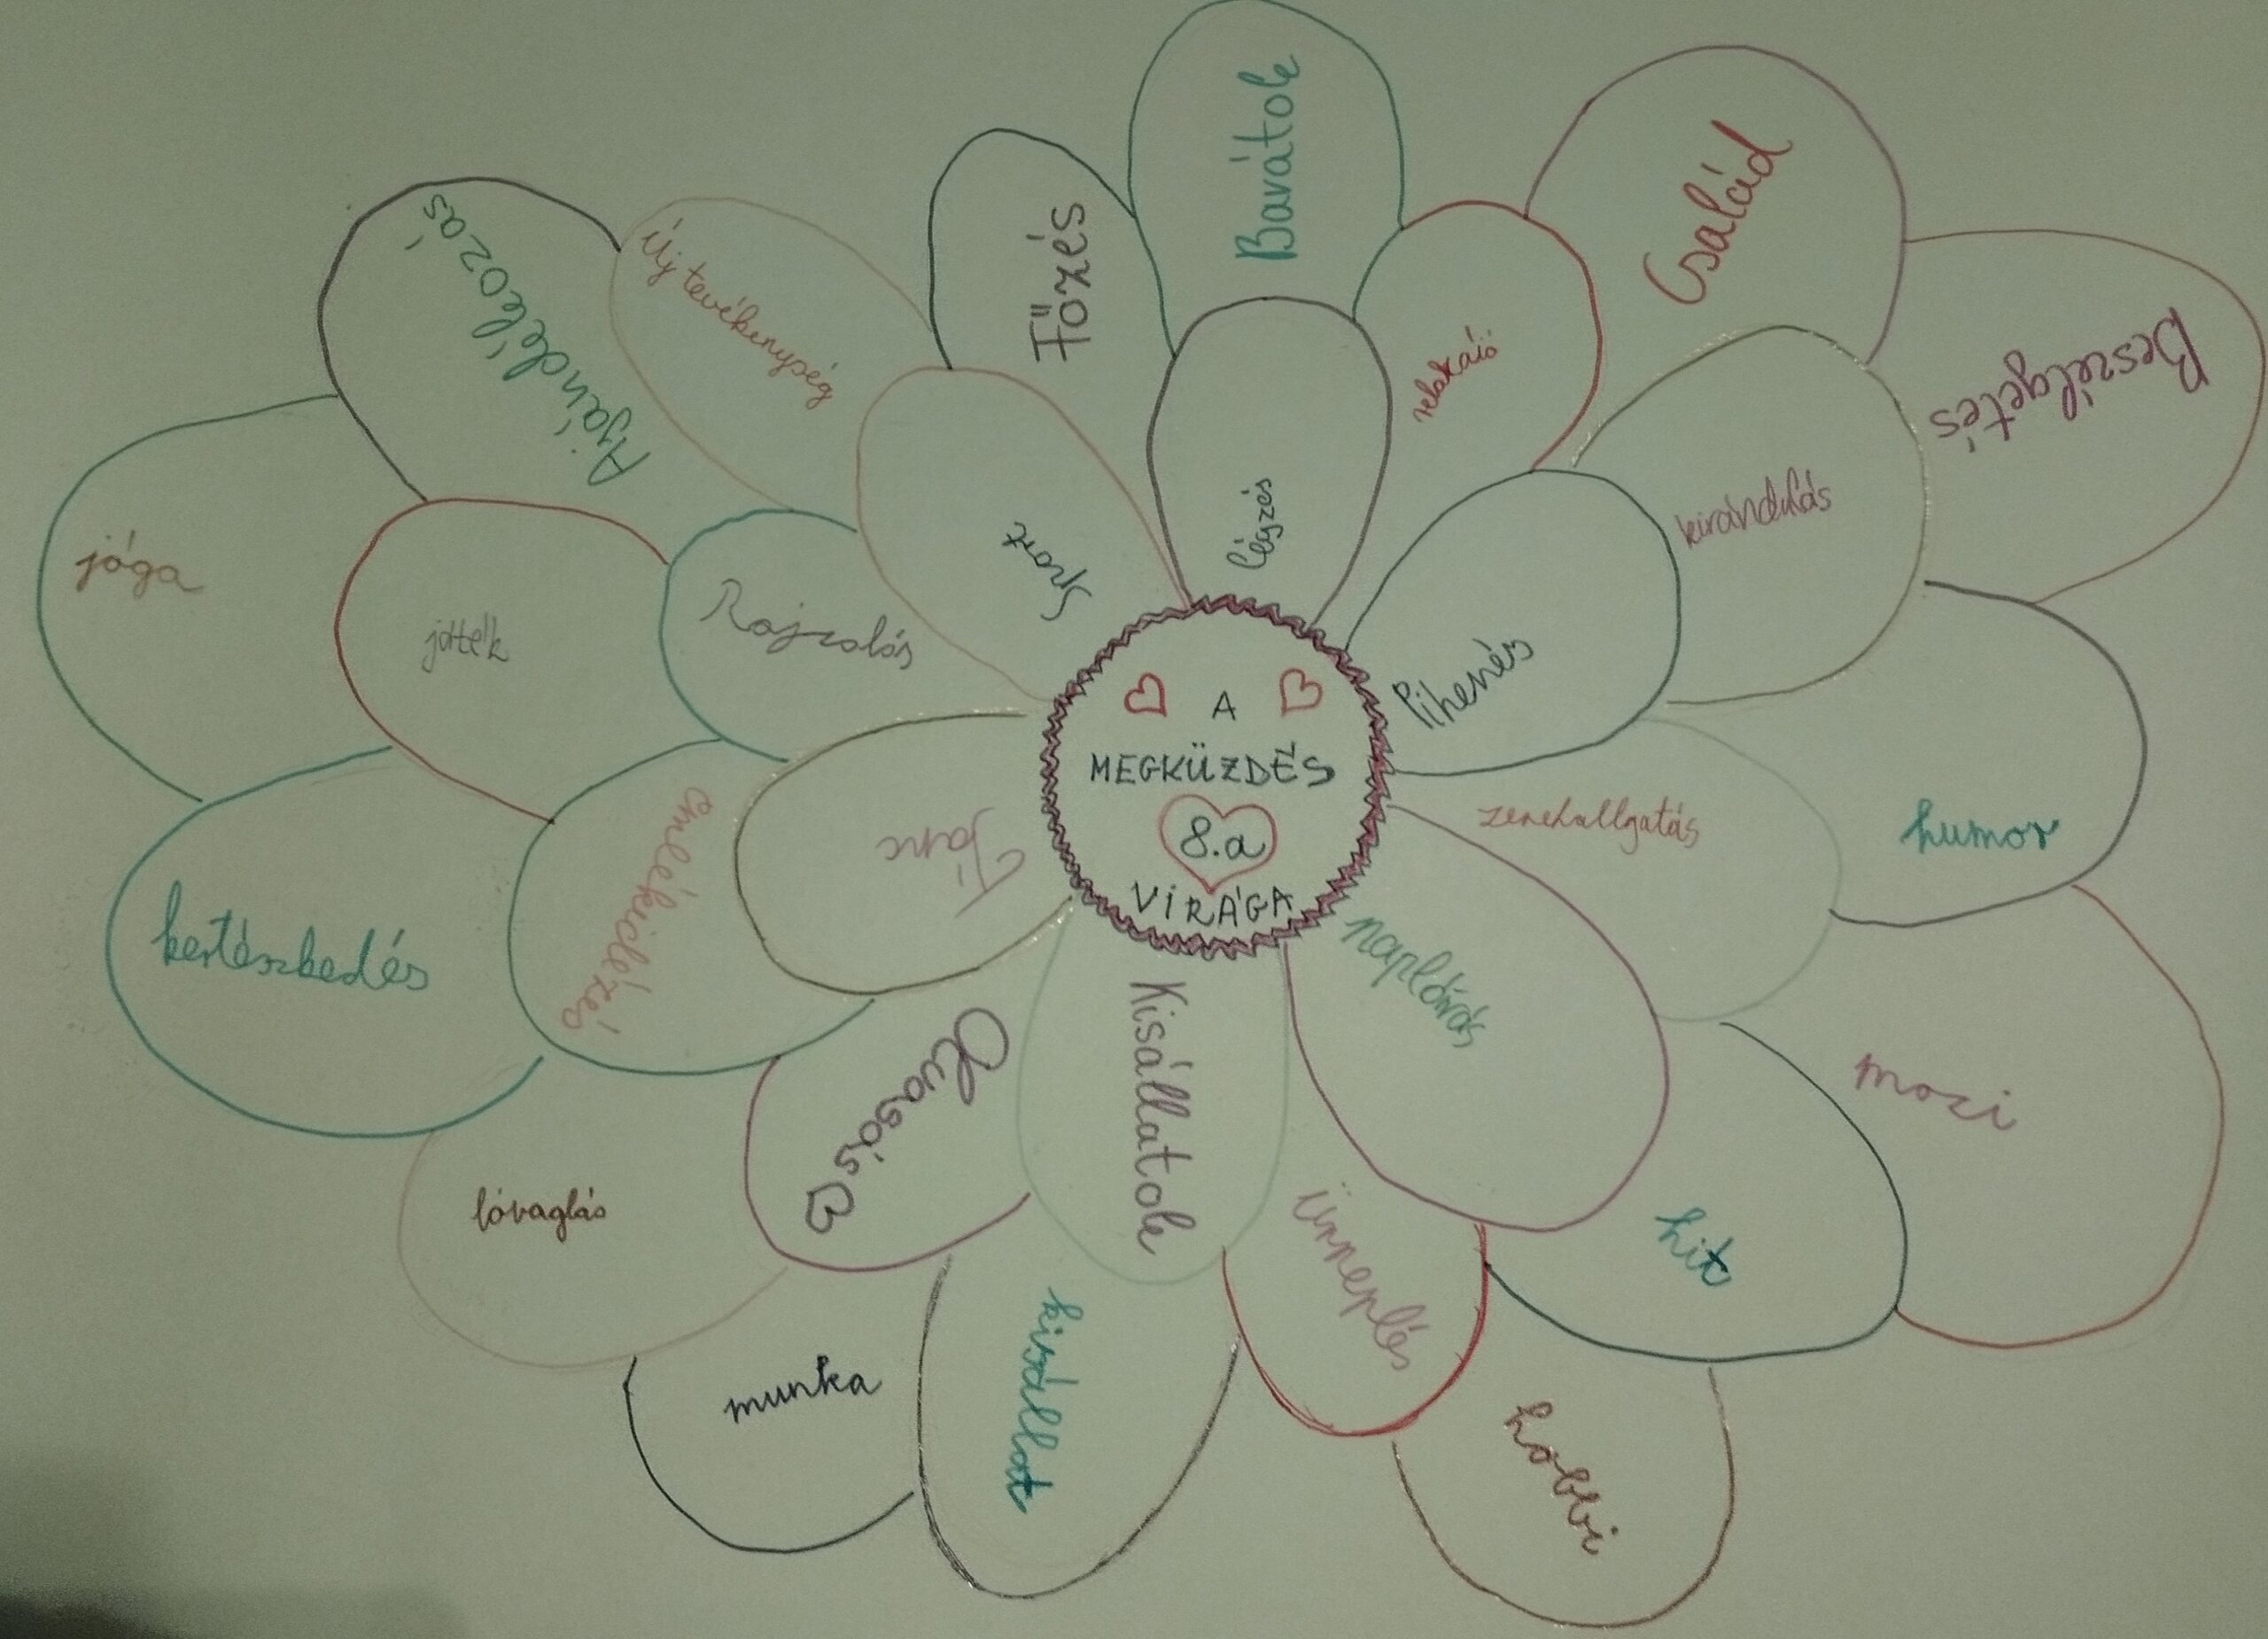 Barátok
Család
Ajándékozás
Új tevékenység
Főzés
relaxáió
Beszélgetés
kirándulás
légzés
sport
jóga
játék
Rajzolás
Pihenés
A
MEGKÜZDÉS
8.a
VIRÁGA
zenehallgatás
humor
Tánc
emlékidézés
kertészkedés
naplóírás
Olvasás
Kisállatok
mozi
lovaglás
ünneplés
hit
munka
kisállat
hobbi